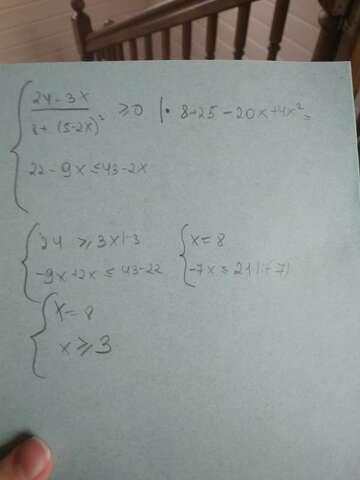 24-3x
8+(5-2x)² ≥0 |• 8+25-20x+4x²=
22-9x≤43-2x
24 ≥3x|:3
-9x+2x≤43-22
x=8
-7x≤21|:(-7)
x=8
x≥3